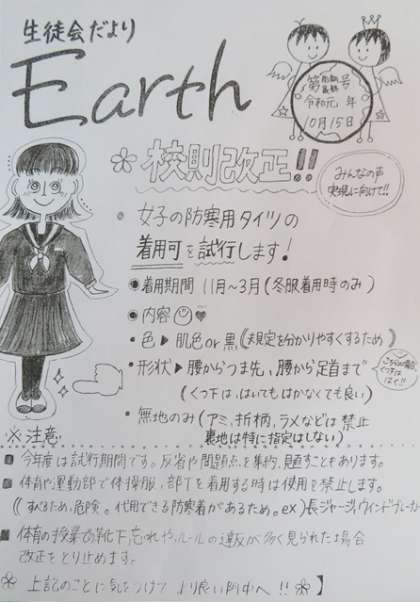 生徒会だより
Earth
第 号
令和元年
10月15日
校則改正!!
みんなの声
実現に向けて!!
・女子の防寒用タイツの
着用可を試行します!
着用期間 11月~3月(冬服着用時のみ)
内容
・色▶肌色or黒(規定を分かりやすくするため)
・形状▶腰からつま先,腰から足首まで
(くつ下は,はいてもはかなくても良い)
くつ下は
・無地のみ(アミ,折柄,ラメなどは禁止
裏地は特に指定はしない)
※注意
今年度は試行期間です。反省や問題点を集約,見直すこともあります。
体育や運動部で体操服,部Tを着用する時は使用を禁止します。
(すべるため,危険。代用できる防寒着があるため。ex)長ジャージ,ウィンドブレーカー
体育の授業で靴下忘れや,ルールの違反が多く見られた場合
改正をとり止めます。
上記のことに気をつけて より良い 中へ!!